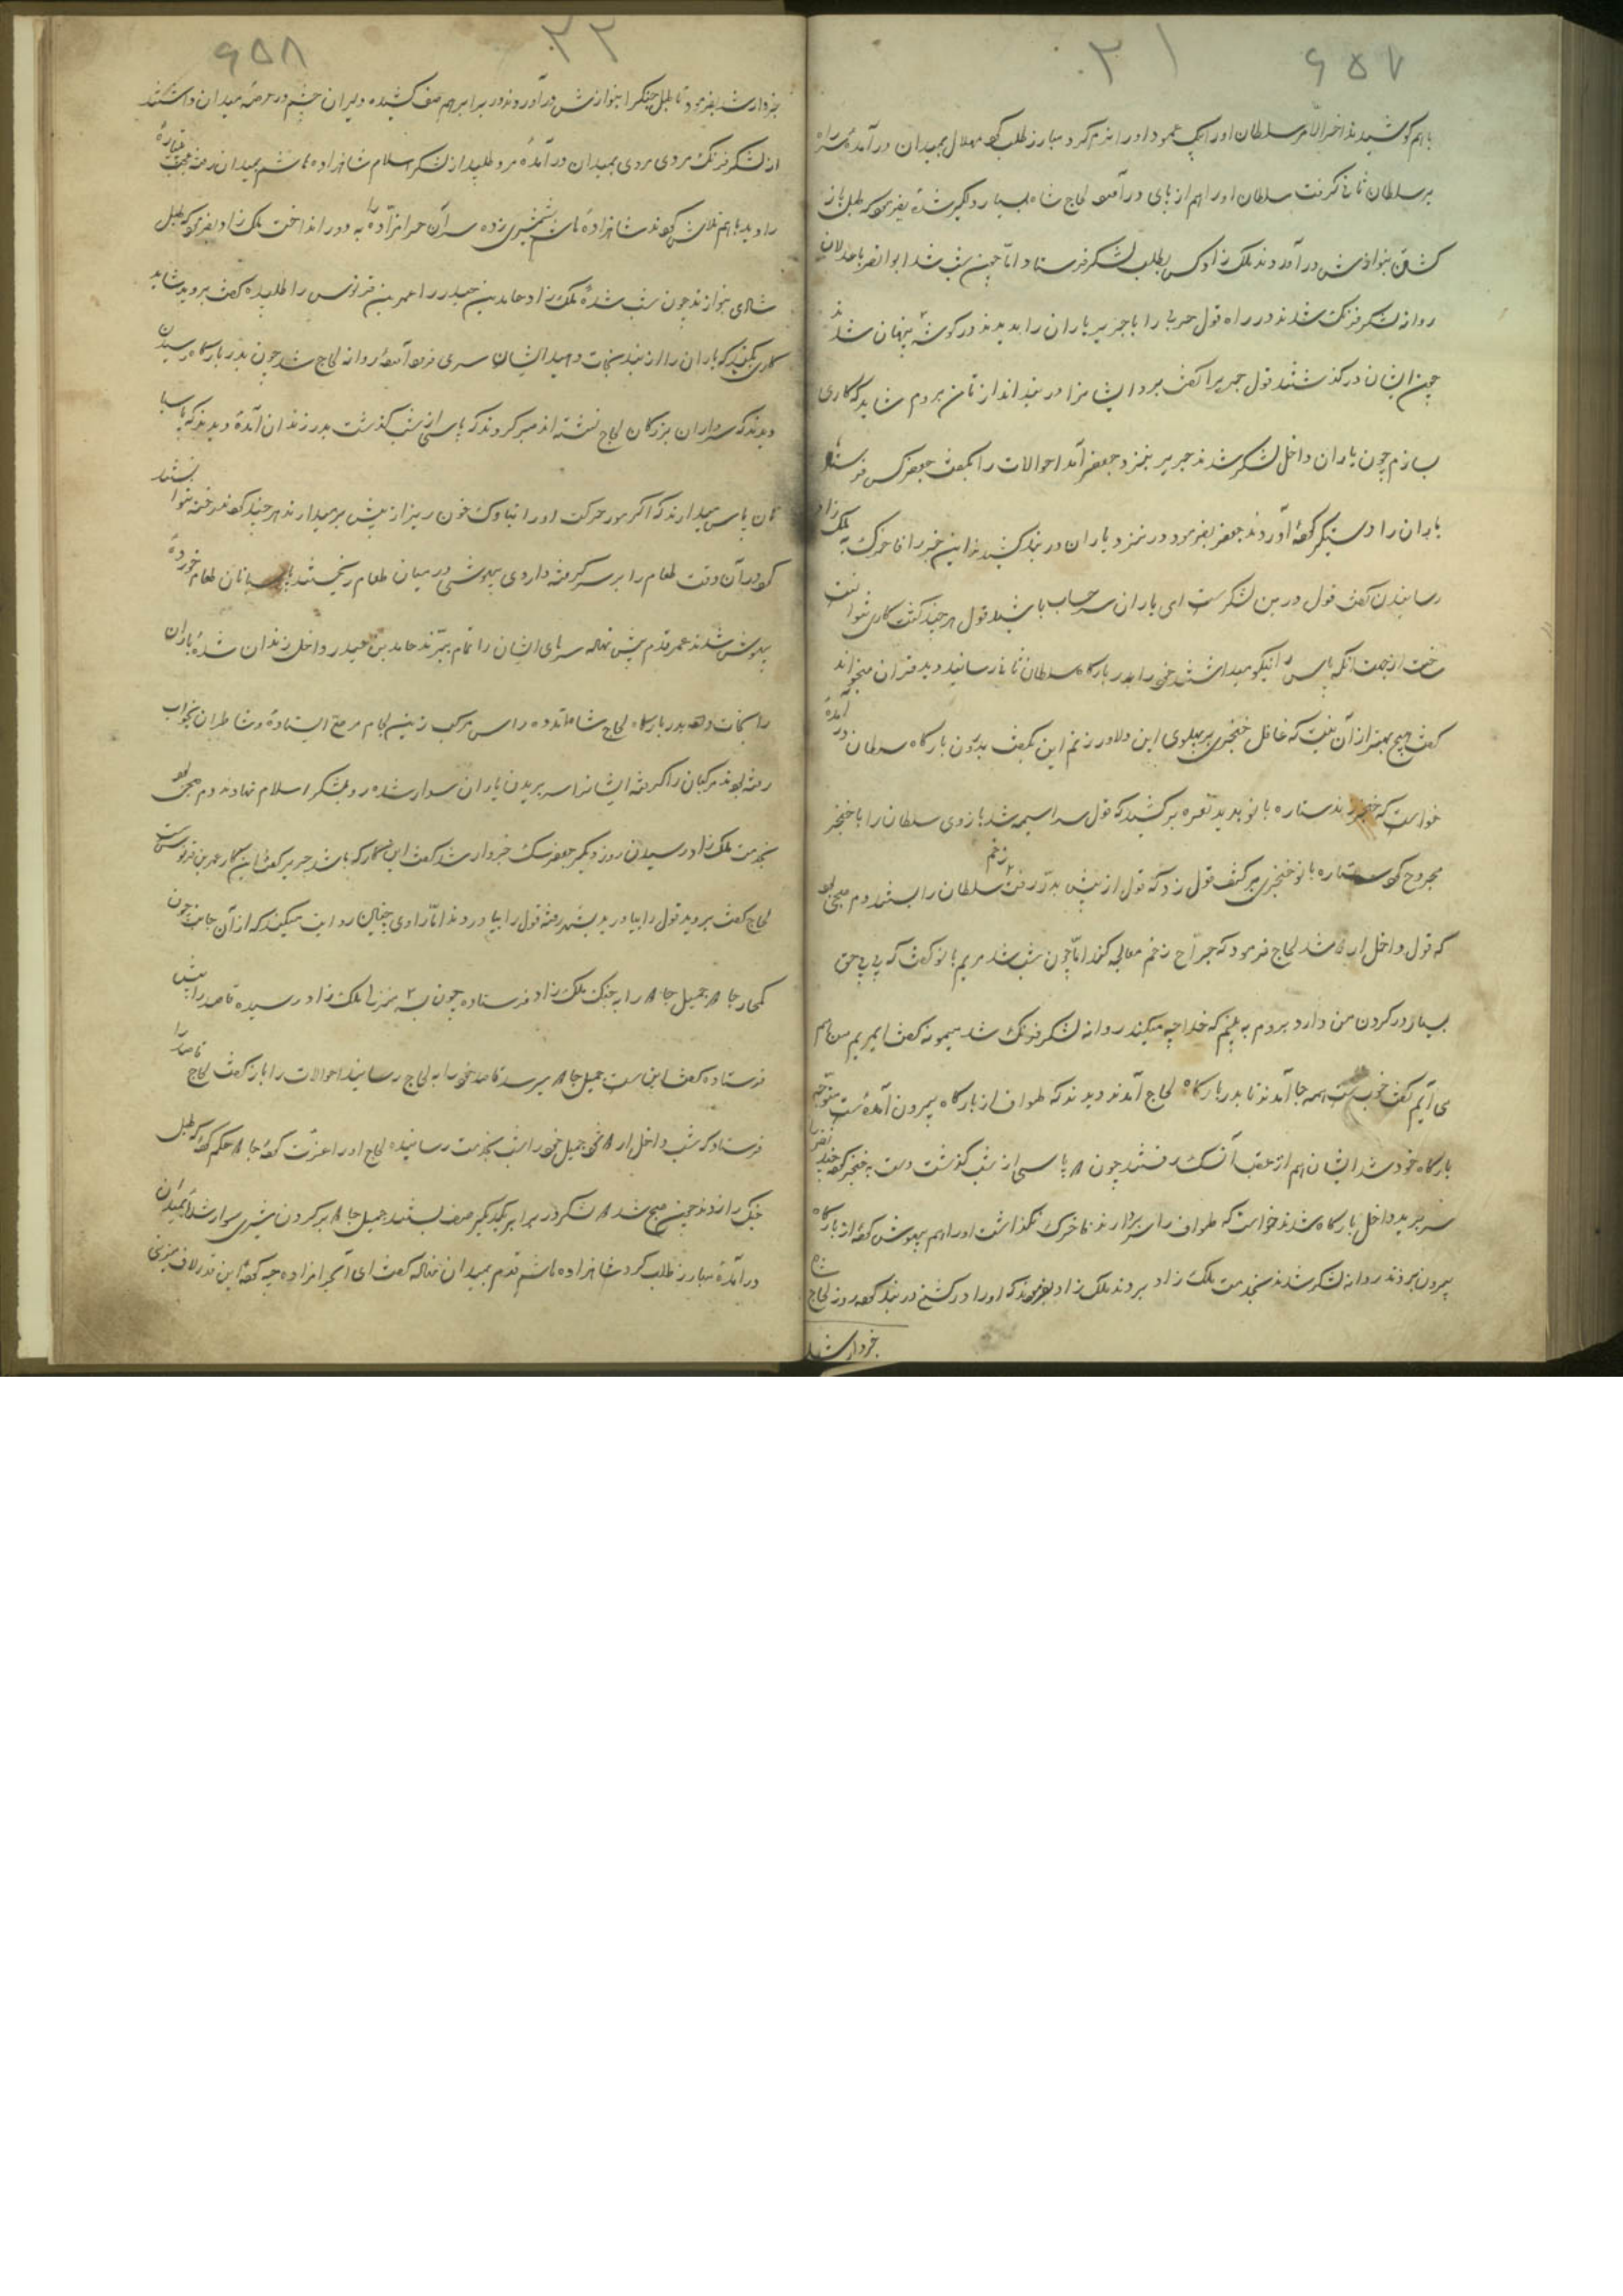 ۶۵۷ ۳۱
با هم کوشیدند اخر الامر سلطان اورا بیک عمود اورا نرم کرد مبارز طلب کرد مهلال بمیدان در آمده سر راه
بر سلطان ثانی کرفت سلطان اورا هم از پای در آمد لجاج شاه بسیار دلگیر شده بفرمود که طبل باز
کشتن بنوازش در آوردند ملک زاد کس بطلب لشکر فرستاد اما چون شب شد ابوالنصر با عدلان
روانه لشکر فرنگ شدند در راه قول حربی را با جریر یاران را بدیدند در کوشه پنهان شدند
چون ایشان در کذشتند قول جریر را کفت برو ایشانرا در بند انداز تا من بروم شاید که کاری
بسازم چون یاران داخل لشکر شدند جریر بنزد جعفر آمد احوالات را بکفت جعفر کس فرستاد
یاران را دستگیر کرده آوردند جعفر بفرمود در نزد یاران در بند کشیدند این خبر را فاخرک بملک زاد
رسانیدن کفت قول در بین لشکر است ای یاران سر حساب باشید قول هر چند کشت کاری نتوانست
ساخت از جهت آنکه پاس را نیکو میداشتند خود را بدر بارکاه سلطان ثانی رسانید دید قران میخواند
کفت هیچ بهتر از آن نیست که غافل خنجری بر پهلوی این دلاور زنم این بکفت بدرون بارکاه سلطان در آمده
خواست که خنجر زند ستاره بانو بدید نعره بر کشید که قول سراسیمه شد بازوی سلطان را با خنجر
مجروح کرد ستاره بانو خنجری بر کتف قول زد که قول از پیش بدر رفت زخم سلطان را بستند دم صبحی بود
که قول داخل اردو شد لجاج فرمود که جراح زخم معالجه کند اما چون شب شد مریم بانو کفت که بی بی حق
بسیار در کردن من دارد بروم به بینم که خدا چه میکند روانه لشکر فرنگ شد میمونه کفت ای مریم من هم
می آیم کفت خوب است همه جا آمدند تا بدر بارکاه لجاج آمدند دیدند که طواف از بارکاه بیرون آمده است متوجه
بارکاه خود شد ایشان هم از عقب آن سک رفتند چون پاسی از شب کذشت دست به خنجر کرده چند نفر را
سر برید داخل بارکاه شدند خواست که طواف را سر بردارند فاخرک نکذاشت اورا هم بیهوش کرده از بارکاه
بیرون بردند روانه لشکر شدند بخدمت ملک زاد بردند ملک زاد بفرمودند که اورا در کشیخ در بند کرده روز لجاج شاه
خبردار شد
۶۵۸ ۳۲
خبردار شد بفرمود تا طبل جنگ را بنوازش در آوردند در برابر هم صف کشیده دلیران چشم در عرصه میدان داشتند
از لشکر فرنگ مردی مردی بمیدان در آمده مرد طلبید از لشکر اسلام شاهزاده هاشم بمیدان رفته
را دید با هم تلاش کردند شاهزاده هاشم شمشیری زده سر آن حرامزاده را به دور انداخت ملک زاد بفرمود که طبل
شادی بنوازند چون شب شد ملک زاد حامد بن حیدر را عمر بن فرنوس را طلبیده کفت بروید شاید
کاری بکنید که یاران را از بند نجات دهید ایشان سری فرود آورده روانه لجاج شد چون بدر بارکاه رسیدن
دیدند که سرداران بزرکان لجاج نشسته اند صبر کردند که پاسی از شب کذشت بدر زندان آمده دیدند که پاسبا
نان پاس میدارند که اکر مور حرکت اورا بناوک خون ریز از پیش بر میدارند هر چند کردند رخنه نتوانستند
کرد در آن وقت طعام را بر سر کرفته داروی بیهوشی در میان طعام ریختند پاسبانان طعام خورده
بیهوش شدند عمر قدم پیش نهاده سرهای ایشان را تمام ببریدند حامد بن حیدر داخل زندان شده یاران
را نجات داده بدر بارکاه لجاج شاه آمده ده راس مرکب زین لجام مرصع ایستاده و شاطران بخواب
رفته بودند مرکبان را کرفته ایشانرا سر بریدن یاران سوار شده رو بلشکر اسلام نهادند دم صبحی بود
بخدمت ملک زاد رسیدن روز دیگر جعفر سک خبردار شد کفت این کار که باشد جریر کفت این کار عمر بن فرنوس است
لجاج کفت بروید قول را بیاورید بشهر رفته قول را بیاوردند اما راوی چنین روایت میکند که از آن جانب چون
جمیل جا را به جنگ ملک زاد فرستاده چون به ۲ منزل ملک زاد رسیده قاصد را پیش
فرستاده کفت این است جمیل جا میرسد قاصد خود را به لجاج رسانید احوالات را باز کفت لجاج قاصد را
فرستاد که شب داخل اردو شو جمیل خود را شب بخدمت رسانیده لجاج اورا عزت کرده جا حکم کرد که طبل
جنگ را زدند چون صبح شد لشکر در برابر یکدیگر صف بستند جمیل جا بر کردن شیری سوار شده بمیدان
در آمده مبارز طلب کرد شاهزاده هاشم قدم بمیدان نهاده کفت ای آن حرامزاده چه کردی این قدر لاف میزنی